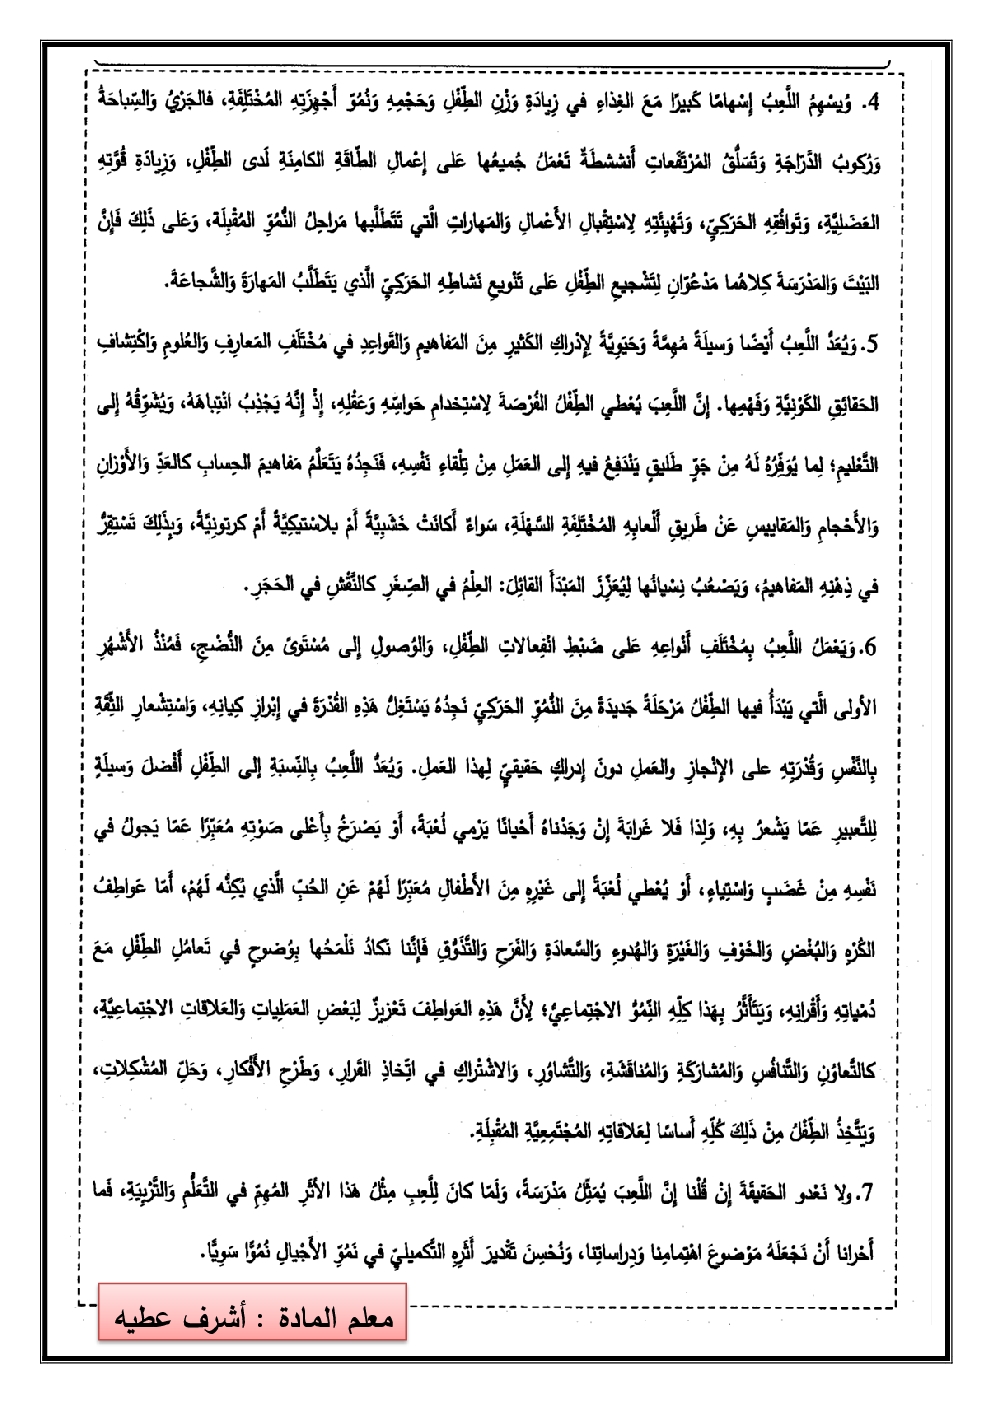 4. وَيُسْهِمُ اللَّعِبُ إِسْهامًا كَبيرًا مَعَ الغِذاءِ في زِيادَةِ وَزْنِ الطِّفْلِ وَحَجْمِهِ وَنُمُوِّ أَجْهِزَتِهِ المُخْتَلِفَةِ، فالجَرْيُ وَالسِّباحَةُ
وَرُكوبُ الدَّرّاجَةِ وَتَسَلُّقُ المُرْتَفَعاتِ أَنششطَةٌ تَعْمَلُ جُميعُها عَلى إِعْمالِ الطّاقَةِ الكامِنَةِ لَدى الطِّفْلِ، وَزِيادَةِ قُوَّتِهِ
العَضَلِيَّةِ، وَتَوافُقِهِ الحَرَكِيِّ، وَتَهْيِئَتِهِ لِاسْتِقْبالِ الأَعْمالِ وَالمَهاراتِ الَّتي تَتَطَلَّبها مَراحِلُ النُّمُوِّ المُقْبِلَة، وَعَلى ذَلِكَ فَإِنَّ
البَيْتَ وَالمَدْرَسَةَ كِلاهُما مَدْعُوّانِ لِتَشْجيعِ الطِّفْلِ عَلى تَنْويعِ نَشاطِهِ الحَرَكِيِّ الَّذي يَتَطَلَّبُ المَهارَةَ وَالشَّجاعَةَ.
5. وَيُعَدُّ اللَّعِبُ أَيْضًا وَسيلَةً مُهِمَّةً وَحَيَوِيَّةً لِإِدْراكِ الكَثيرِ مِنَ المَفاهيمِ وَالقَواعِدِ في مُخْتَلَفِ المَعارِفِ وَالعُلومِ وَاكْتِشافِ
الحَقائِقِ الكَوْنِيَّةِ وَفَهْمِها. إِنَّ اللَّعِبَ يُعْطي الطِّفْلُ الفُرْصَةَ لِاسْتِخدامِ حَواسِّهِ وَعَقْلِهِ، إِذْ إِنَّهُ يَجْذِبُ انْتِباهَهُ، وَيُشَوِّقُهُ إِلى
التَّعْليمِ؛ لِما يُوَفِّرُهُ لَهُ مِنْ جَوٍّ طَليقٍ يَنْدَفِعُ فيهِ إِلى العَمَلِ مِنْ تِلْقاءِ نَفْسِهِ، فَنَجِدُهُ يَتَعَلَّمُ مَفاهيمَ الحِسابِ كالعَدِّ وَالأَوْزانِ
وَالأَحْجامِ وَالمَقاييسِ عَنْ طَريقِ أَلْعابِهِ المُخْتَلِفَةِ السَّهْلَةِ، سَواءً أَكانَتْ خَشَبِيَّةً أَمْ بلاسْتيكِيَّةً أَمْ كرتونِيَّةً، وَبِذَلِكَ تَسْتَقِرُّ
في ذِهْنِهِ المَفاهيمُ، وَيَصْعُبُ نِسْيانُها لِيُعَزِّزَ المَبْدَأَ القائِلَ: العِلْمُ في الصِّغَرِ كالنَّقْشِ في الحَجَرِ.
6. وَيَعْمَلُ اللَّعِبُ بِمُخْتَلَفِ أَنْواعِهِ عَلى ضَبْطِ انْفِعالاتِ الطِّفْلِ، وَالوُصولِ إِلى مُسْتَوىً مِنَ النُّضْجِ، فَمُنْذُ الأَشْهُرِ
الأولى الَّتي يَبْدَأُ فيها الطِّفْلُ مَرْحَلَةً جَديدَةً مِنَ النُّمُوِّ الحَرَكِيِّ نَجِدُهُ يَسْتَغِلُّ هَذِهِ القُدْرَةَ في إِبْرازِ كِيانِهِ، وَاسْتِشْعارِ الثِّقَةِ
بِالنَّفْسِ وَقُدْرَتِهِ على الإِنْجازِ والعَمَلِ دونَ إِدراكٍ حَقيقيٍّ لِهذا العَمَلِ. وَيُعَدُّ اللَّعِبُ بِالنِّسْبَةِ إِلى الطِّفْلِ أَفْضَلَ وَسيلَةٍ
لِلتَّعبيرِ عَمّا يَشْعرُ بِهِ، وَلِذا فَلا غَرابَةَ إِنْ وَجَدْناهُ أَحْيانًا يَرْمي لُعْبَةً، أَوْ يَصْرَخُ بِأَعْلى صَوْتِهِ مُعَبِّرًا عَمّا يَجولُ في
نَفْسِهِ مِنْ غَضَبٍ وَاسْتِياءٍ، أَوْ يُعْطي لُعْبَةً إِلى غَيْرِهِ مِنَ الأَطْفالِ مُعَبِّرًا لَهُمْ عَنِ الحُبِّ الَّذي يُكِنُّه لَهُمْ، أَمّا عَواطِفُ
الكُرْهِ وَالبُغْضِ وَالخَوْفِ وَالغَيْرَةِ وَالهُدوءِ وَالسَّعادَةِ وَالفَرَحِ وَالتَّذَوُّقِ فَإِنَّنا نَكادُ نَلْمَحُها بِوُضوحٍ في تَعامُلِ الطِّفْلِ مَعَ
دُمْياتِهِ وَأَقْرانِهِ، وَيَتَأَثَّرُ بِهَذا كلِّهِ النُّمُوُّ الاجْتِماعِيُّ؛ لِأَنَّ هَذِهِ العَواطِفَ تَعْزيزٌ لِبَعْضِ العَمَلِياتِ وَالعَلاقاتِ الاجْتِماعِيَّةِ،
كالتَّعاوُنِ وَالتَّنافُسِ وَالمُشارَكَةِ وَالمُناقَشَةِ، وَالتَّشاوُرِ، وَالاشْتْراكِ في اتِّخاذِ القَرارِ، وَطَرْحِ الأَفْكارِ، وَحَلِّ المُشْكِلاتِ،
وَيَتَّخِذُ الطِّفْلُ مِنْ ذَلِكَ كُلِّهِ أَساسًا لِعَلاقاتِهِ المُجْتَمِعِيَّةِ المُقْبِلَةِ.
7. ولا نَعْدو الحَقيقَةَ إِنْ قُلْنا إِنَّ اللَّعِبَ يُمَثِّلُ مَدْرَسَةً، وَلَمّا كانَ لِلَّعِبِ مِثْلُ هَذا الأَثَرِ المُهِمِّ في التَّعَلُّمِ وَالتَّرْبِيَةِ، فَما
أَحْرانا أَنْ نَجْعَلَهُ مَوْضوعَ اهْتِمامِنا وَدِراساتِنا، وَنُحْسِنَ تَقْديرَ أَثَرِهِ التَّكميليِّ في نَمُوِّ الأَجْيالِ نُمُوًّا سَوِيًّا.
معلم المادة : أشرف عطيه